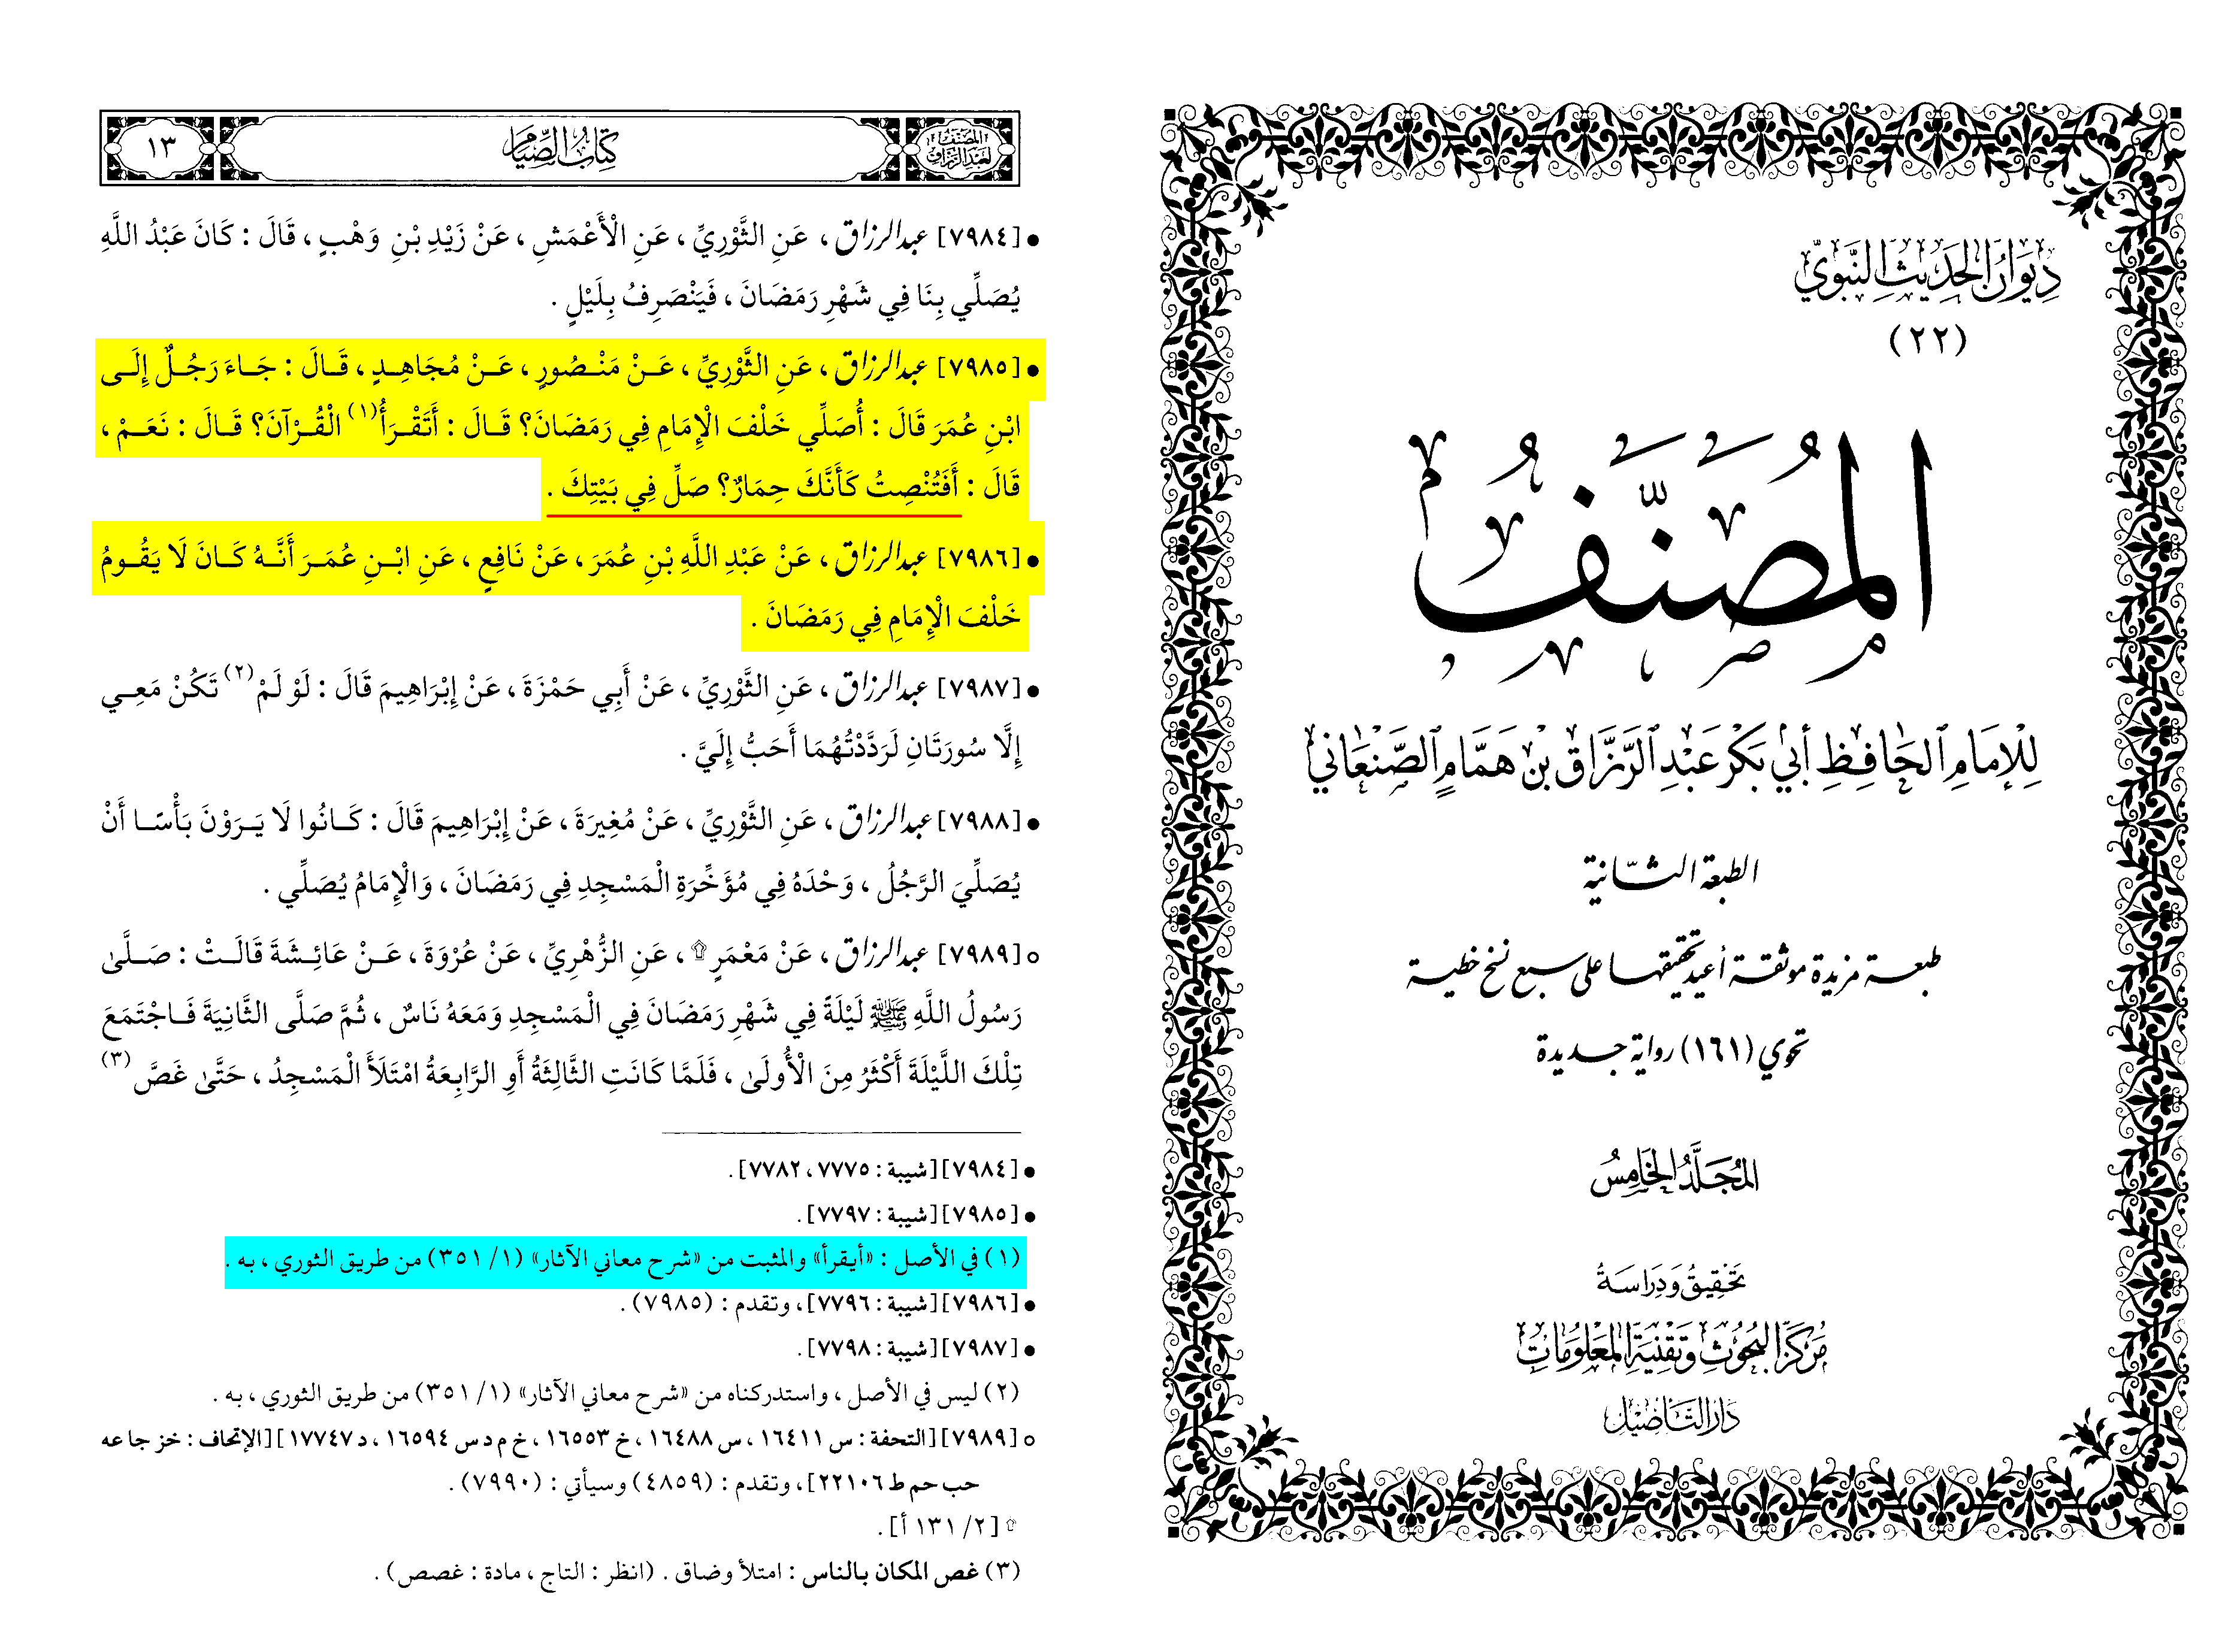 ديوان الحديث النبوي
(٢٢)
المُصَنَّفُ
لِلإمَامِ ٱلحَافِظِ أبي بَكْر عَبْدِ ٱلرَّزَّاق بن هَمَّامٍ ٱلصَّنْعَاني
الطبعة الثانية
طبعة مزيدة موثقة أعيد تحقيقها على سبع نسخ خطية
تحوي (١٦١) رواية جديدة
المُجَلَّدُ الخَامِسُ
تَحْقِيقُ وَدِرَاسَةُ
مَركز البُحُوثِ وَتَقْنِيَةِ المَعْلُومَاتِ
دَار التَّاصِيْل
المصنف
لعبد الرزاق
كتاب الصيام
١٣
• [٧٩٨٤] عبد الرزاق ، عَنِ الثَّوْرِيِّ ، عَنِ الْأَعْمَشِ ، عَنْ زَيْدِ بْنِ وَهْبٍ ، قَالَ : كَانَ عَبْدُ اللَّهِ
يُصَلِّي بِنَا فِي شَهْرِ رَمَضَانَ ، فَيَنْصَرِفُ بِلَيْلٍ .
• [٧٩٨٥] عبد الرزاق ، عَنِ الثَّوْرِيِّ ، عَنْ مَنْصُورٍ ، عَنْ مُجَاهِدٍ ، قَالَ : جَاءَ رَجُلٌ إِلَى
ابْنِ عُمَرَ قَالَ : أُصَلِّي خَلْفَ الْإِمَامِ فِي رَمَضَانَ؟ قَالَ : أَتَقْرَأُ(١) الْقُرْآنَ؟ قَالَ : نَعَمْ ،
قَالَ : أَفَتُنْصِتُ كَأَنَّكَ حِمَارٌ؟ صَلِّ فِي بَيْتِكَ .
• [٧٩٨٦] عبد الرزاق ، عَنْ عَبْدِ اللَّهِ بْنِ عُمَرَ ، عَنْ نَافِعٍ ، عَنِ ابْنِ عُمَرَ أَنَّهُ كَانَ لَا يَقُومُ
خَلْفَ الْإِمَامِ فِي رَمَضَانَ .
• [٧٩٨٧] عبد الرزاق ، عَنِ الثَّوْرِيِّ ، عَنْ أَبِي حَمْزَةَ ، عَنْ إِبْرَاهِيمَ قَالَ : لَوْ لَمْ(٢) تَكُنْ مَعِي
إِلَّا سُورَتَانِ لَرَدَّدْتُهُمَا أَحَبُّ إِلَيَّ .
• [٧٩٨٨] عبد الرزاق ، عَنِ الثَّوْرِيِّ ، عَنْ مُغِيرَةَ ، عَنْ إِبْرَاهِيمَ قَالَ : كَانُوا لَا يَرَوْنَ بَأْسًا أَنْ
يُصَلِّيَ الرَّجُلُ ، وَحْدَهُ فِي مُؤَخِّرَةِ الْمَسْجِدِ فِي رَمَضَانَ ، وَالْإِمَامُ يُصَلِّي .
○ [٧٩٨٩] عبد الرزاق ، عَنْ مَعْمَرٍ ۩ ، عَنِ الزُّهْرِيِّ ، عَنْ عُرْوَةَ ، عَنْ عَائِشَةَ قَالَتْ : صَلَّى
رَسُولُ اللَّهِ ﷺ لَيْلَةً فِي شَهْرِ رَمَضَانَ فِي الْمَسْجِدِ وَمَعَهُ نَاسٌ ، ثُمَّ صَلَّى الثَّانِيَةَ فَاجْتَمَعَ
تِلْكَ اللَّيْلَةَ أَكْثَرُ مِنَ الْأُولَى ، فَلَمَّا كَانَتِ الثَّالِثَةُ أَوِ الرَّابِعَةُ امْتَلَأَ الْمَسْجِدُ ، حَتَّى غَصَّ(٣)
• [٧٩٨٤][شيبة : ٧٧٧٥، ٧٧٨٢].
• [٧٩٨٥][شيبة : ٧٧٩٧].
(١) في الأصل : «أيقرأ» والمثبت من «شرح معاني الآثار» (١/ ٣٥١) من طريق الثوري ، به .
• [٧٩٨٦][شيبة : ٧٧٩٦]، وتقدم : (٧٩٨٥).
• [٧٩٨٧][شيبة : ٧٧٩٨].
(٢) ليس في الأصل ، واستدركناه من «شرح معاني الآثار» (١/ ٣٥١) من طريق الثوري ، به .
○ [٧٩٨٩][التحفة : س ١٦٤١١، س ١٦٤٨٨، خ ١٦٥٥٣، خ م د س ١٦٥٩٤، د ١٧٧٤٧][الإتحاف : خز جا عه
حب حم ط ٢٢١٠٦]، وتقدم : (٤٨٥٩) وسيأتي : (٧٩٩٠).
۩ [٢/ ١٣١ أ].
(٣) غص المكان بالناس : امتلأ وضاق . (انظر : التاج ، مادة : غصص).